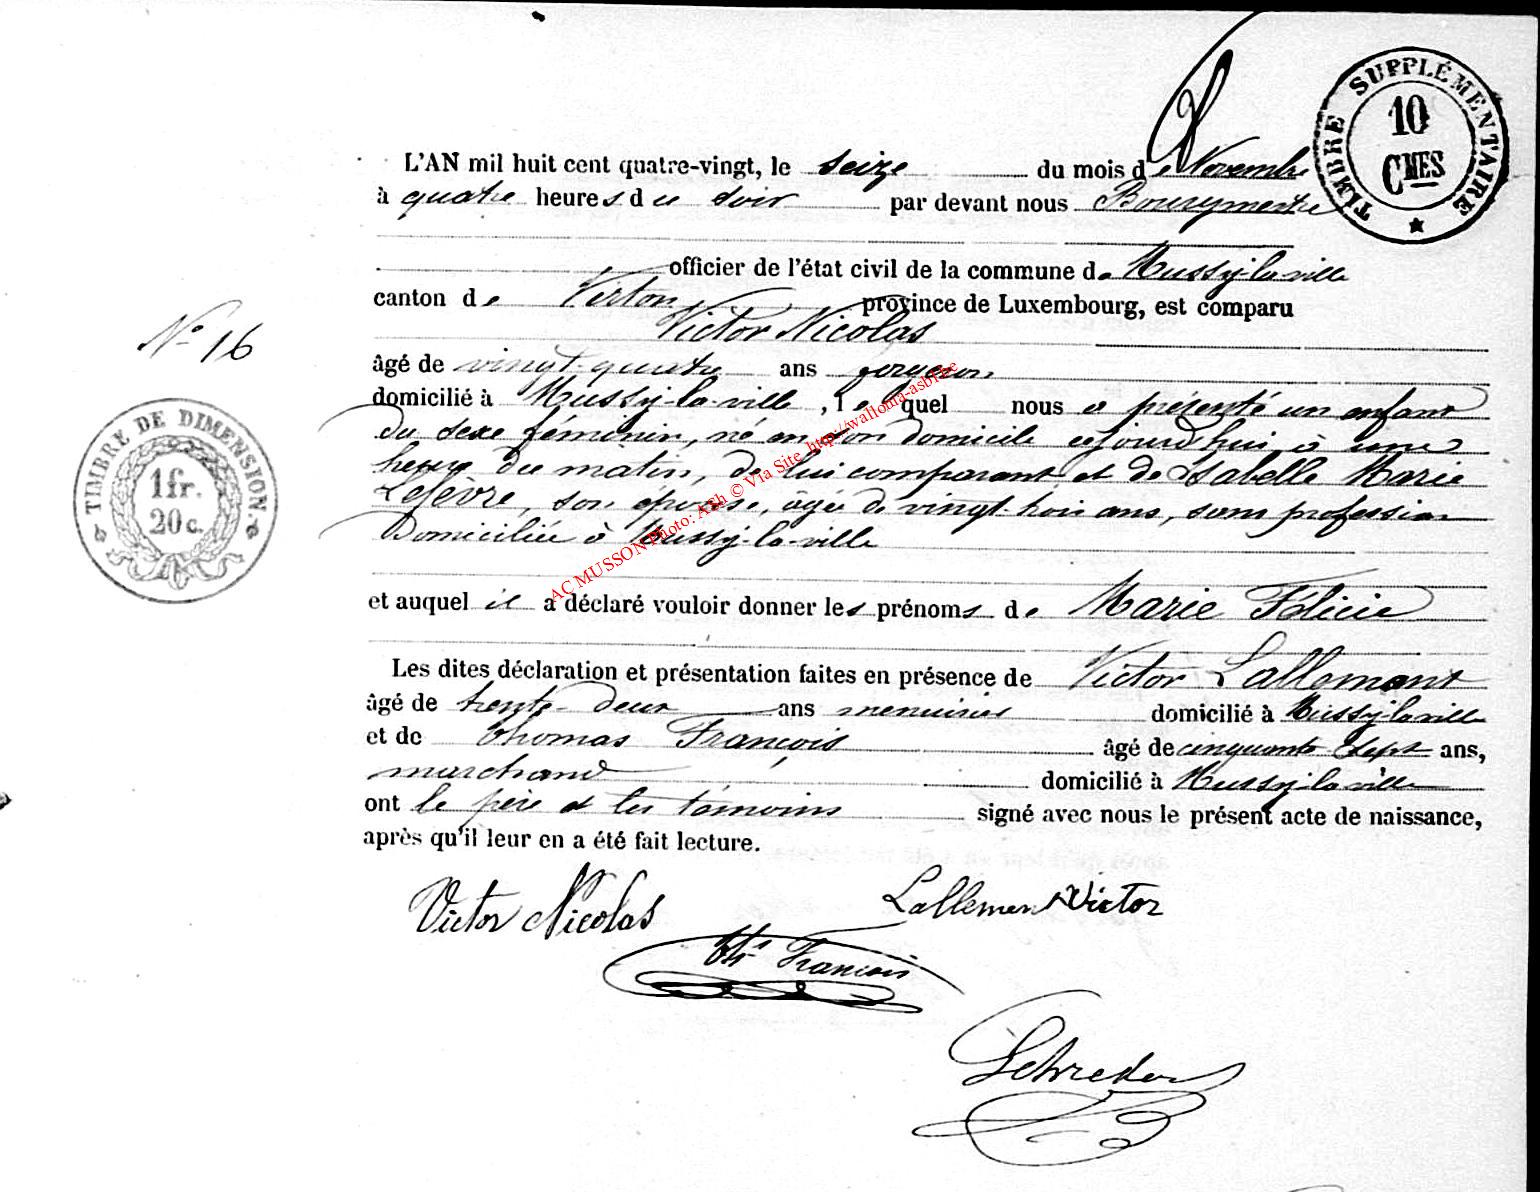 TIMBRE SUPPLÉMENTAIRE
10
CMES
L'AN mil huit cent quatre-vingt, le seize du mois de Novembre
à quatre heures du soir par devant nous Bourgmestre
officier de l'état civil de la commune de Mussy-la-ville
canton de Virton province de Luxembourg, est comparu
Victor Nicolas
N° 16
âgé de vingt-quatre ans forgeron
domicilié à Mussy-la-ville, Lequel nous a présenté un enfant
du sexe féminin, né en son domicile cejourd'hui à une
heure du matin, de lui comparant et de Isabelle Marie
Lefèvre, son épouse, âgée de vingt-trois ans, sans profession
Domiciliée à Mussy-la-ville
TIMBRE DE DIMENSION.
1fr.
20c.
AC MUSSON Photo: ASh © Via Site http://wallonia-asbl.be
et auquel il a déclaré vouloir donner les prénoms de Marie Félicie
Les dites déclaration et présentation faites en présence de Victor Lallemant
âgé de trente-deux ans menuisier domicilié à Mussy-la-ville
et de Thomas François âgé de cinquante sept ans,
marchand domicilié à Mussy-la-ville
ont le père et les témoins signé avec nous le présent acte de naissance,
après qu'il leur en a été fait lecture.
Victor Nicolas Lallemant Victor
Ths François
Schreder